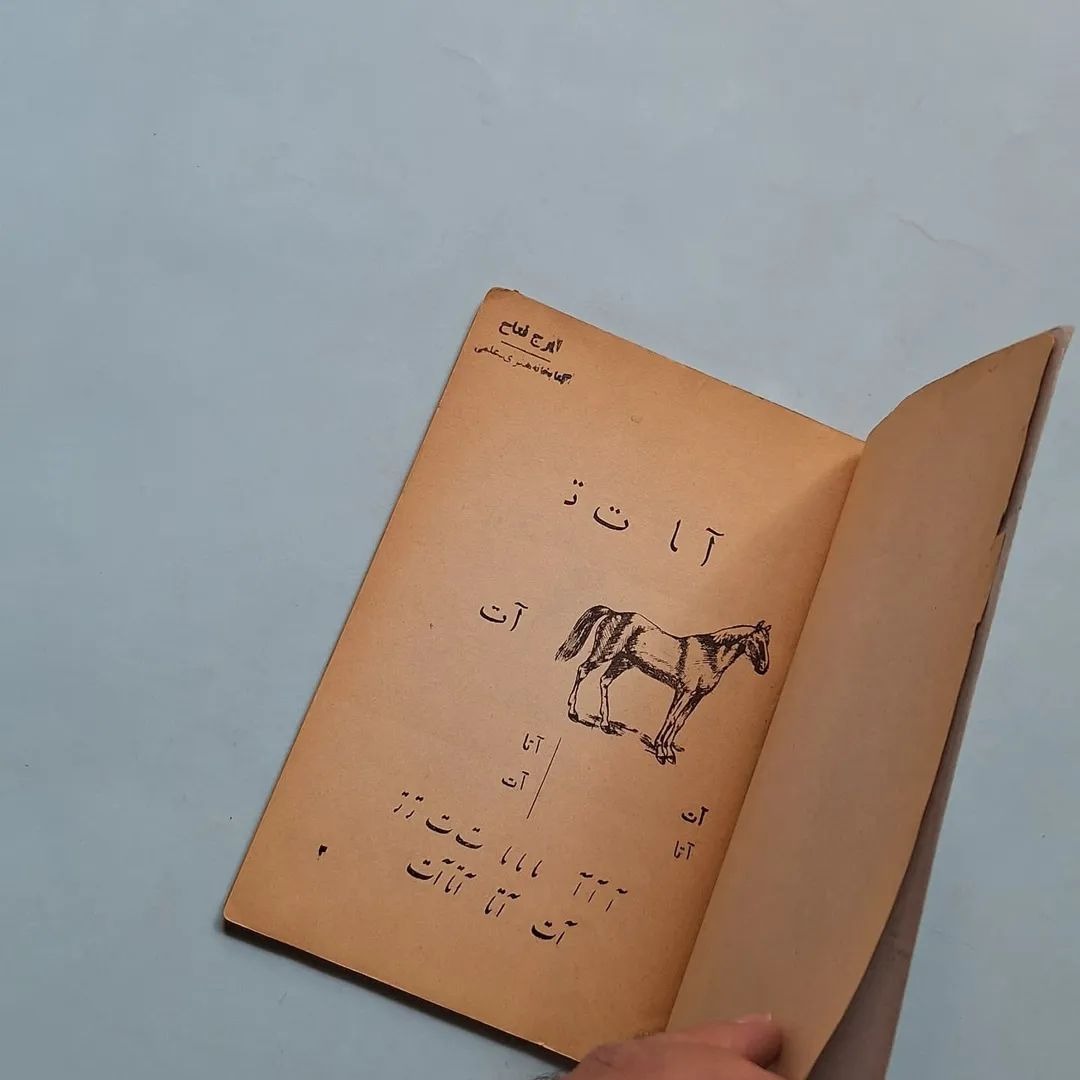 ایرج
کتابخانه هنری-علمی
آ ا ت تـ
آت
آتا
آت
آت
آتا
آ آ آ ا ا ا ا ت ت تـ تـ
آت آتا آتا آت
۳